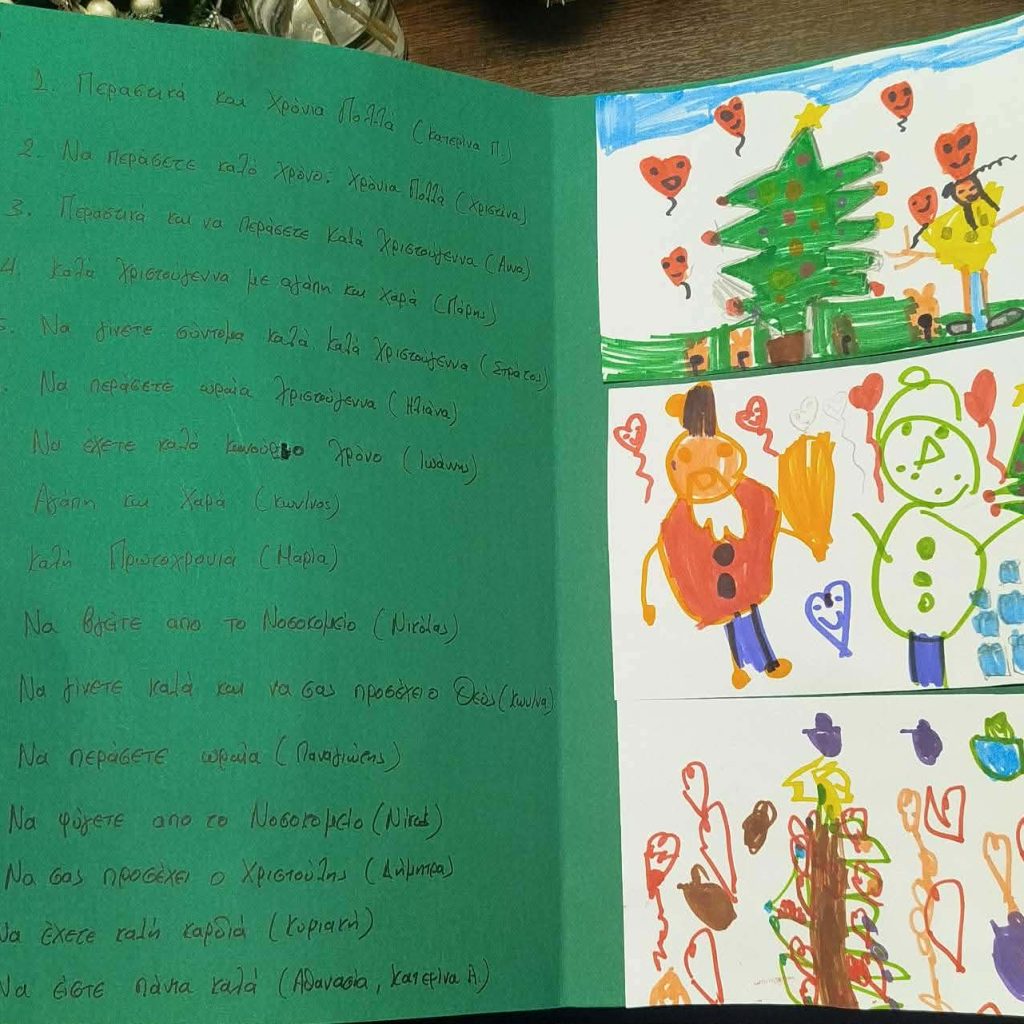 1. Περαστικά και Χρόνια Πολλά (Κατερίνα Π.)
2. Να περάσετε καλό Χρόνο: Χρόνια Πολλά (Χριστίνα)
3. Περαστικά και να περάσετε Καλά Χριστούγεννα (Άννα)
4. Καλά Χριστούγεννα με αγάπη και χαρά (Πάρης)
5. Να γίνετε σύντομα καλά Καλά Χριστούγεννα (Στράτος)
. Να περάσετε ωραία Χριστούγεννα (Ηλιάνα)
Να έχετε καλό Χρόνο (Ιωάννης)
Αγάπη και Χαρά (Κων/νος)
Καλή Πρωτοχρονιά (Μαρία)
Να βγείτε απο το Νοσοκομείο (Νικόλας)
Να γίνετε καλά και να σας προσέχει ο Θεός (Κων/να)
Να περάσετε ωραία (Παναγιώτης)
Να φύγετε απο το Νοσοκομείο
Να σας προσέχει ο Χριστούλης (Δήμητρα)
Να έχετε καλή καρδιά (Κυριακή)
Να είστε πάντα καλά (Αθανασία, Κατερίνα Α.)